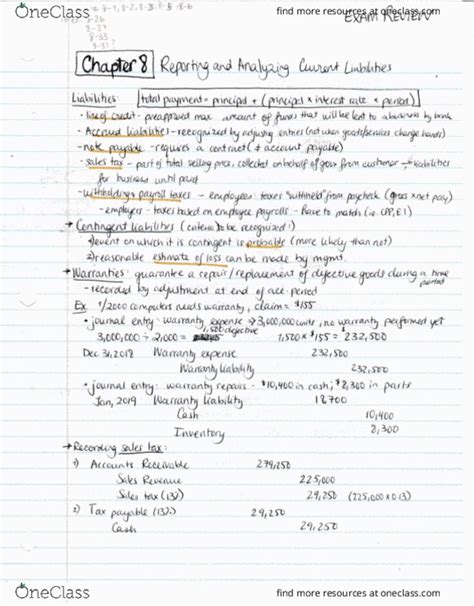 OneClass
find more resources at oneclass.com
EXAM REVIEW
8-26
8-27
8-33
Chapter 8 Reporting and Analyzing Current Liabilities
Liabilities: total payment = principal + (principal × interest rate × period)
- line of credit - preapproved max amount of funds that will be lent to a business by bank
- Accrued liabilities - recognized by adjusting entries (not when goods/services change hands)
- note payable - requires a contract (≠ account payable)
- sales tax - part of total selling price, collected on behalf of gov from customer → liabilities
for business until paid
- withholding & payroll taxes - employees taxes "withheld" from paycheck (gross × net pay)
- employers - taxes based on employee payrolls - have to match (ie. CPP, EI)
→ Contingent liabilities (criteria to be recognized:)
1) event on which it is contingent is probable (more likely than not)
2) reasonable estimate of loss can be made by mgmt.
→ Warranties: guarantee a repair/replacement of defective goods during a time
period
- recorded by adjustment at end of acc. period
Ex. 1/2000 computers needs warranty, claim = $155
• journal entry: warranty expense → 3,000,000 units, no warranty performed yet
3,000,000 ÷ 2,000 = 1,500 defective 1,500 × $155 = 232,500
Dec 31, 2018 Warranty expense 232,500
Warranty liability 232,500
• journal entry: warranty repairs - $10,400 in cash; $8,300 in parts
Jan, 2019 Warranty liability 18700
Cash 10,400
Inventory 8,300
→ Recording sales tax:
1) Accounts Receivable 254,250
Sales Revenue 225,000
Sales tax (13%) 29,250 (225,000 × 0.13)
2) Tax payable (13%) 29,250
Cash 29,250
OneClass
find more resources at oneclass.com